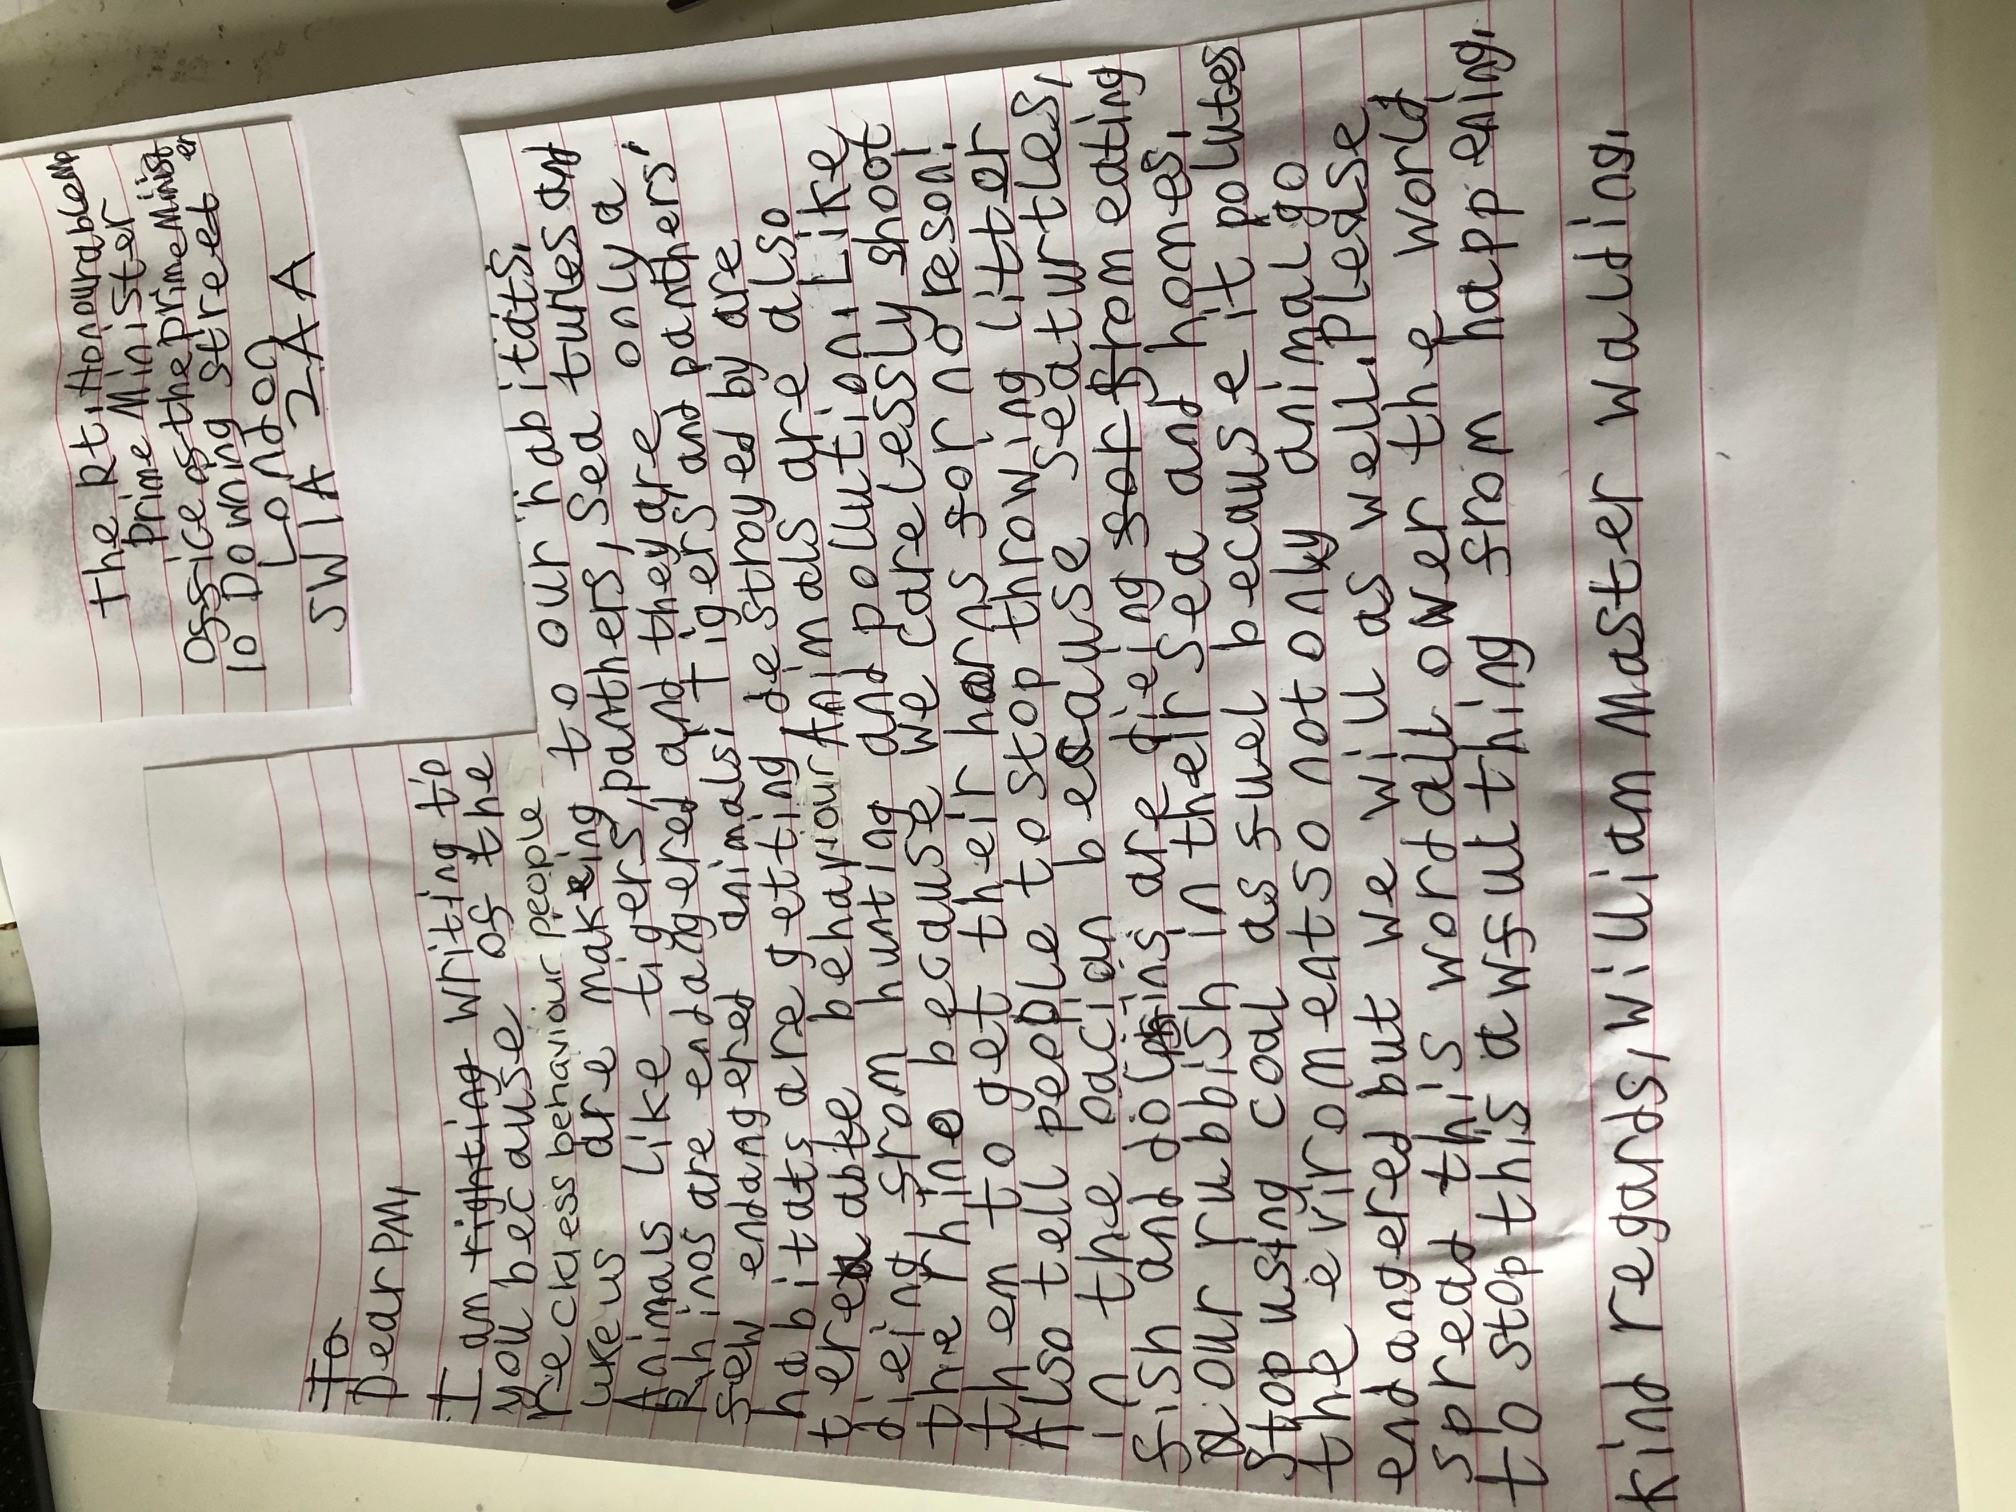 The Rt. Honourable MP
Prime Minister
Office of the prime Minister
10 Downing street
London
SW1A 2AA
To
Dear PM,
I am righting writing to
you because of the
reckless behaviour people
like us are makeing to our habitats.
Animals like tigers, panthers, sea turles and
Rhinos are endaggered and they are only a
few endangered animals. Tigers and panthers'
habitats are getting destroyed by are
terable behaviour Animals are also
dieing from hunting and pollution. Like
the rhino because we carelessly shoot
them to get their horns for no reson!
Also tell people to stop throwing litter
in the oacian because sea turtles,
fish and dolphins are dieing for from eating
our rubbish in their sea and homes.
stop using coal as fuel because it polutes
the eviroment so not only animal go
endangered but we will as well. Please
spread this word all over the world
to stop this awful thing from happening.
Kind regards, William Master walding.